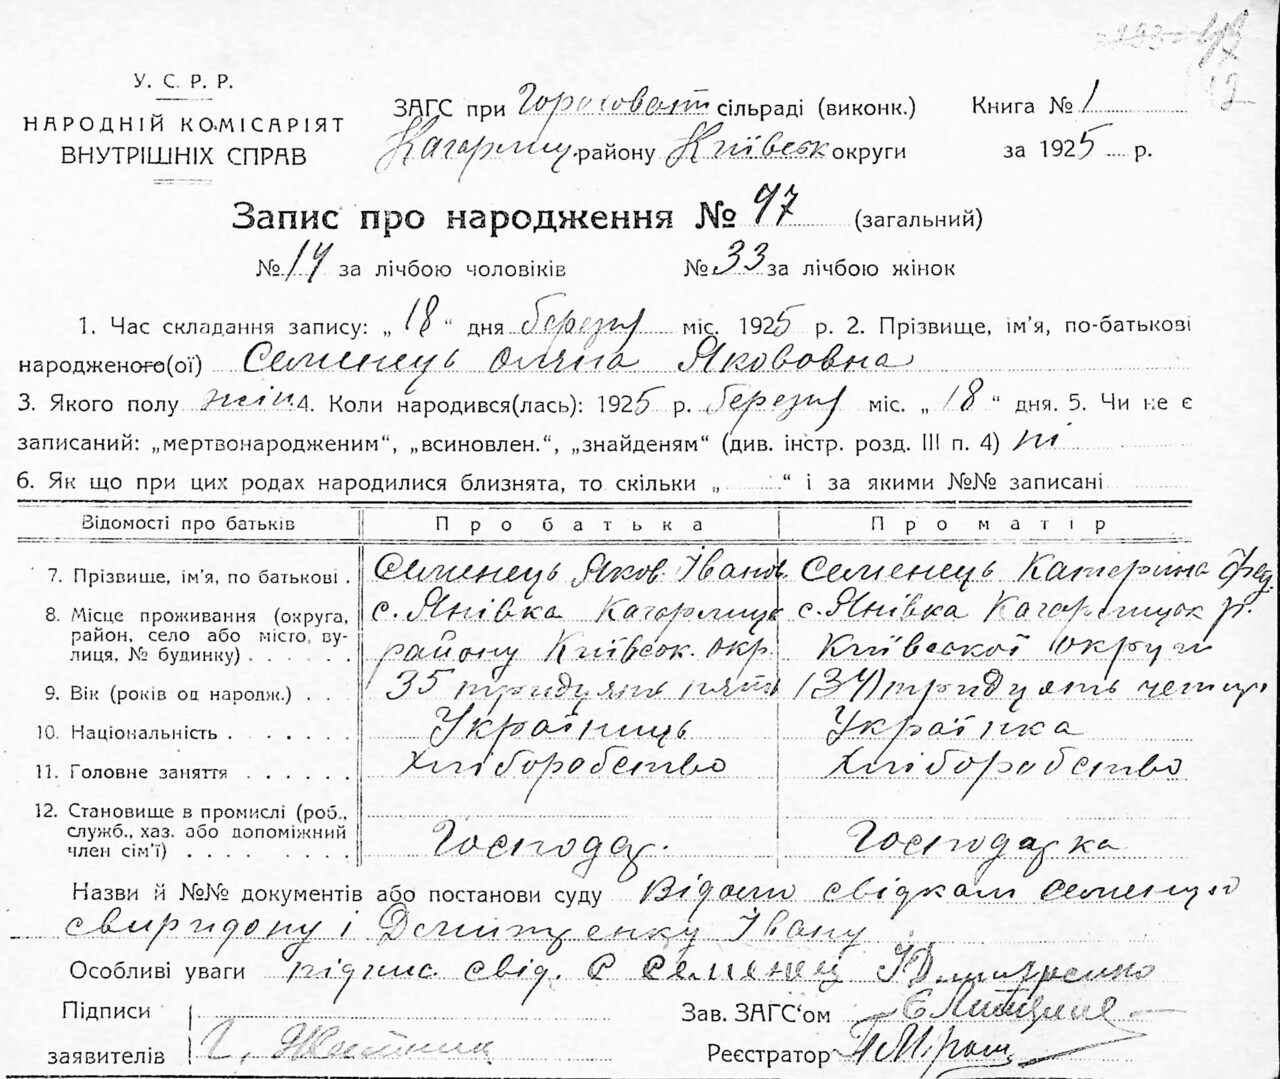 У. С. Р. Р.
НАРОДНІЙ КОМІСАРІЯТ
ВНУТРІШНІХ СПРАВ
ЗАГС при сільраді (виконк.)
Кагарлиц. району Київськ округи
Книга № 1
за 1925 р.
Запис про народження № 47 (загальний)
№ 14 за лічбою чоловіків № 33 за лічбою жінок
1. Час складання запису: „ 18 “ дня березня міс. 1925 р. 2. Прізвище, ім’я, по-батькові
народженого(ої) Семенець Оляна Якововна
3. Якого полу жін. 4. Коли народився(лась): 1925 р. березня міс. „ 18 “ дня. 5. Чи не є
записаний: „мертвонародженим“, „всиновлен.“, „знайденям“ (див. інстр. розд. III п. 4) ні
6. Як що при цих родах народилися близнята, то скільки „ “ і за якими №№ записані
Відомості про батьків Про батька Про матір
7. Прізвище, ім’я, по батькові . Семенець Яков Іванов. Семенець Катерина Фед.
8. Місце проживання (округа, район, село або місто, вулиця, № будинку) . . . . . .
с. Янівка Кагарлицьк с. Янівка Кагарлицьк р.
району Київськ. окр. Київської округи
9. Вік (років од народж.) . . 35 тридцять пять (34) тридцять чотири
10. Національність . . . . . . Українець Українка
11. Головне заняття . . . . . . Хліборобство Хліборобство
12. Становище в промислі (роб., служб., хаз. або допоміжний член сім’ї) . . . . . . . .
Господар. Господарка
Назви й №№ документів або постанови суду Відомо свідкам Семенцю
Свиридону і Дмитренку Івану
Особливі уваги підпис. свід. С Семенец І Дмитренко
Підписи
заявителів
Зав. ЗАГС‘ом
Реєстратор